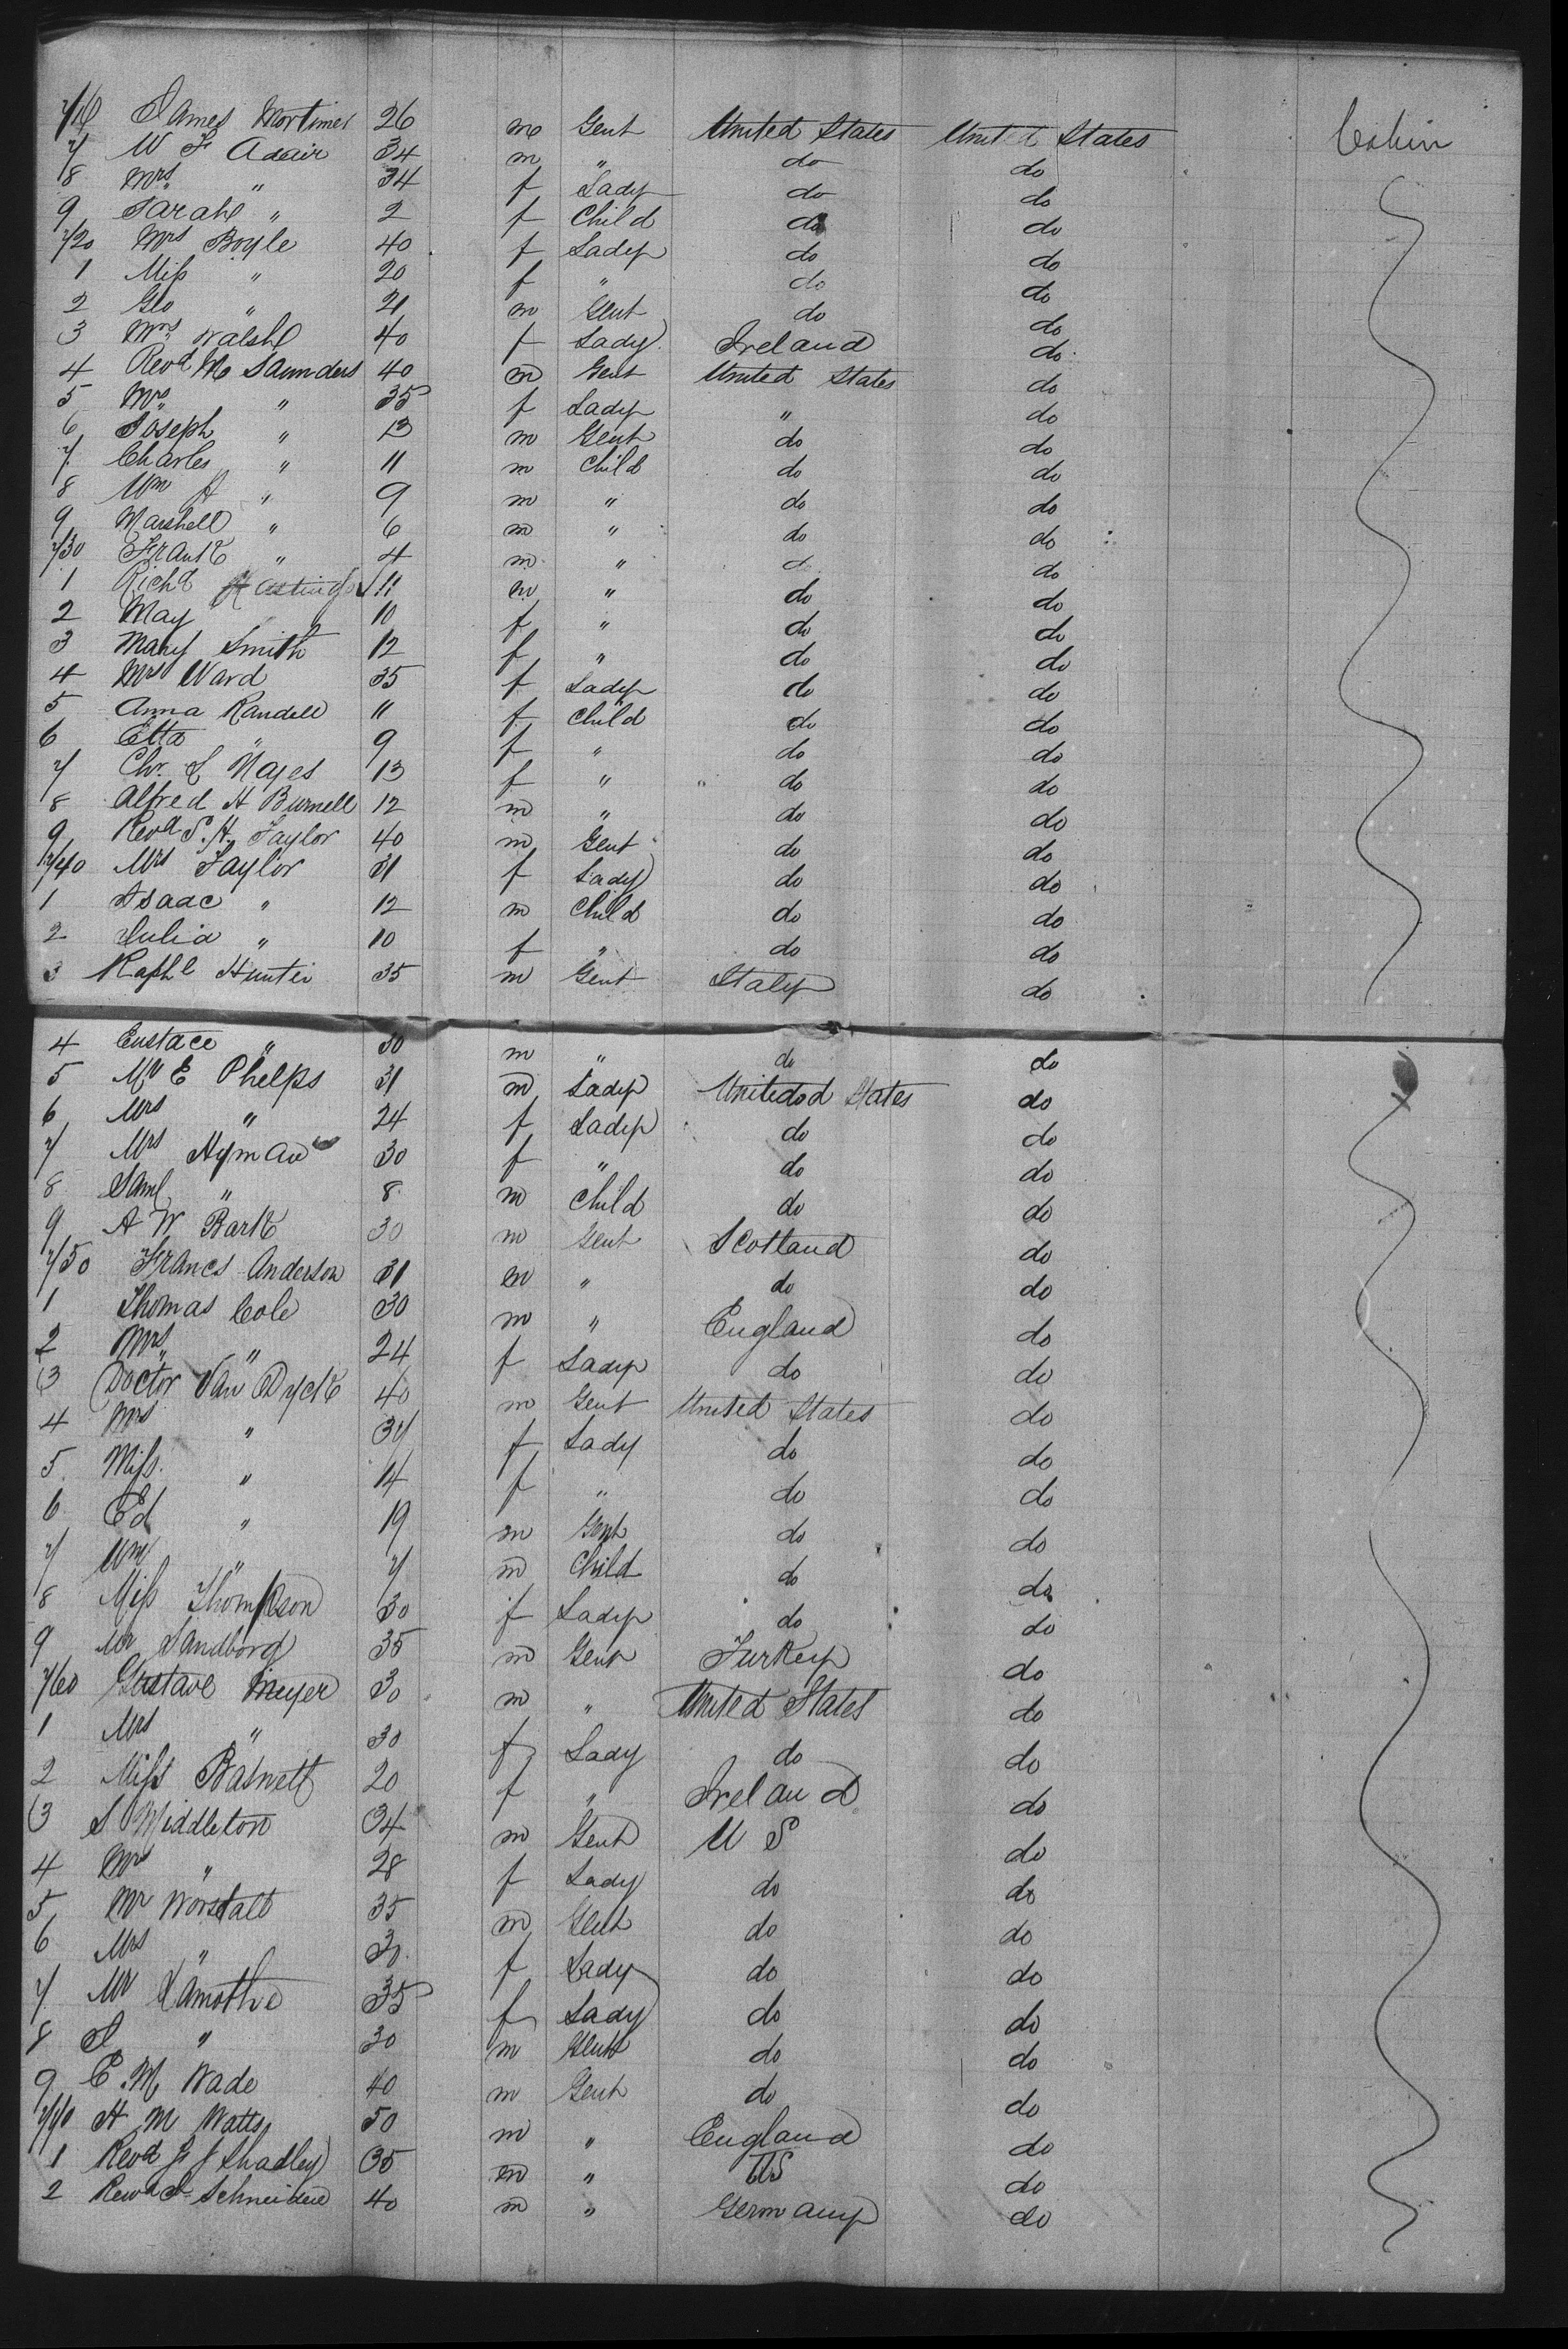 716 James Mortimer 26 m Gent United States United States Cabin
7 W F Adair 34 m " do do
8 Mrs " 34 f Lady do do
9 Sarah " 2 f Child do do
720 Mrs Boyle 40 f Lady do do
1 Miss " 20 f " do do
2 Geo " 21 m Gent do do
3 Mrs Walsh 40 f Lady Ireland do
4 Revd M Saunders 40 m Gent United States do
5 Mrs " 35 f Lady " do
6 Joseph " 13 m Gent do do
7 Charles " 11 m Child do do
8 Wm A " 9 m " do do
9 Marshell " 6 m " do do
730 Frank " 4 m " do do
1 Richd Hastings 11 m " do do
2 May 10 f " do do
3 Mary Smith 12 f " do do
4 Mrs Ward 35 f Lady do do
5 Anna Randell 11 f Child do do
6 Etta " 9 f " do do
7 Chr. L Mayes 13 f " do do
8 Alfred H Burnell 12 m " do do
9 Revd S. H. Taylor 40 m Gent do do
740 Mrs Taylor 31 f Lady do do
1 Isaac " 12 m Child do do
2 Julia " 10 f " do do
3 Raphl Hunter 35 m Gent Italy do
4 Eustace " 30 m " do do
5 Mr E Phelps 31 m Lady Unitedod States do
6 Mrs " 24 f Lady do do
7 Mrs Hyman 30 f " do do
8 Saml " 8 m Child do do
9 A W Park 30 m Gent Scotland do
750 Francs Anderson 31 m " do do
1 Thomas Cole 30 m " England do
2 Mrs " 24 f Lady do do
3 Doctor Van Dyck 40 m Gent United States do
4 Mrs " 37 f Lady do do
5 Miss " 14 f " do do
6 Ed " 19 m Gent do do
7 Wm " 7 m Child do do
8 Miss Thompson 30 f Lady do do
9 Mr Sandborg 35 m Gent Turkey do
760 Gustave Meyer 30 m " United States do
1 Mrs " 30 f Lady do do
2 Miss Basnett 20 f " Ireland do
3 S Middleton 34 m Gent U S do
4 Mrs " 28 f Lady do do
5 Mr Worstall 35 m Gent do do
6 Mrs " 30 f Lady do do
7 Mr Lamothe 35 f Lady do do
8 J " 30 m Gent do do
9 E. M Wade 40 m Gent do do
770 H M Watts 50 m " England do
1 Revd G J Shadley 35 m " US do
2 Revd J Schneider 40 m " Germany do